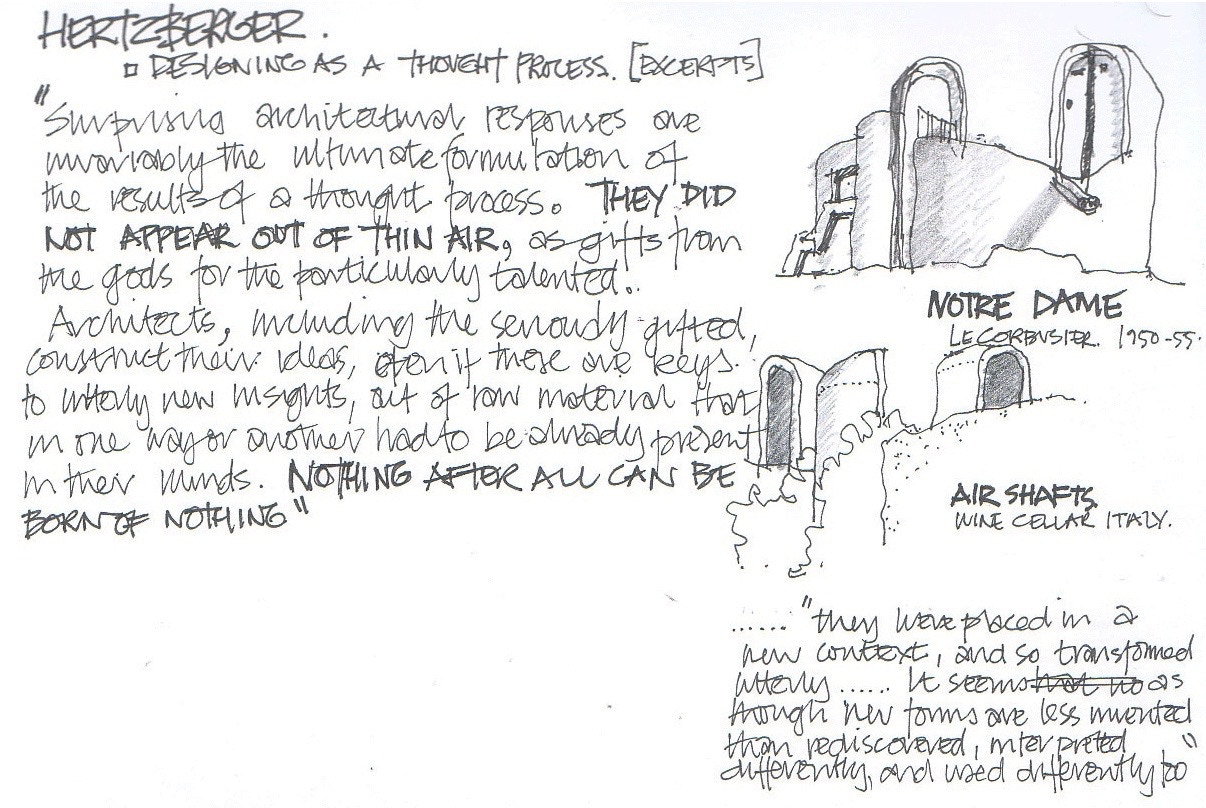 HERTZBERGER.
DESIGNING AS A THOUGHT PROCESS. [EXCERPTS]
"Surprising architectural responses are
invariably the ultimate formulation of
the results of a thought process. THEY DID
NOT APPEAR OUT OF THIN AIR, as gifts from
the gods for the particularly talented..
Architects, including the seriously gifted,
construct their ideas, even if these are keys
to utterly new insights, out of raw material that
in one way or another had to be already present
in their minds. NOTHING AFTER ALL CAN BE
BORN OF NOTHING"
NOTRE DAME
LE CORBUSIER. 1950-55.
AIR SHAFTS
WINE CELLAR ITALY.
...... "they were placed in a
new context, and so transformed
utterly ...... It seems as
though new forms are less invented
than rediscovered, interpreted
differently, and used differently too"